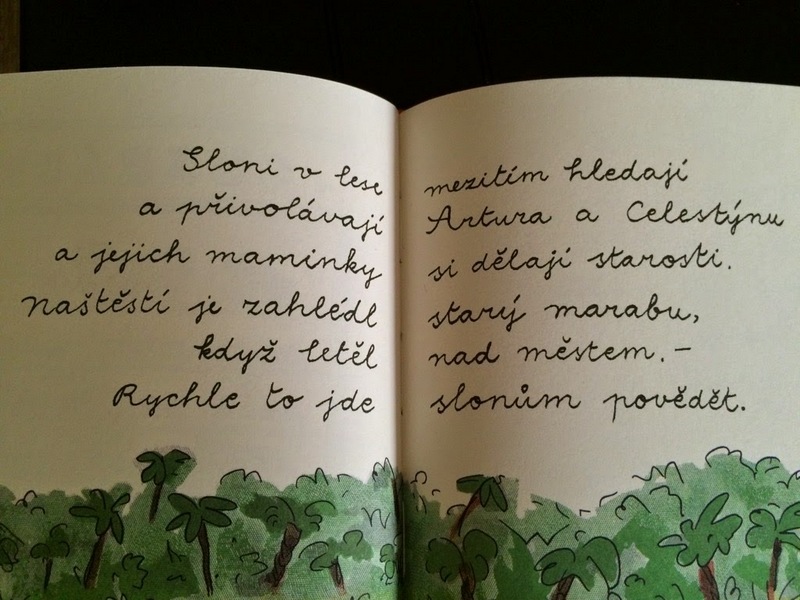 Sloni v lese mezitím hledají
a přivolávají Artura a Celestýnu
a jejich maminky si dělají starosti.
Naštěstí je zahlédl starý marabu,
když letěl nad městem.–
Rychle to jde slonům povědět.